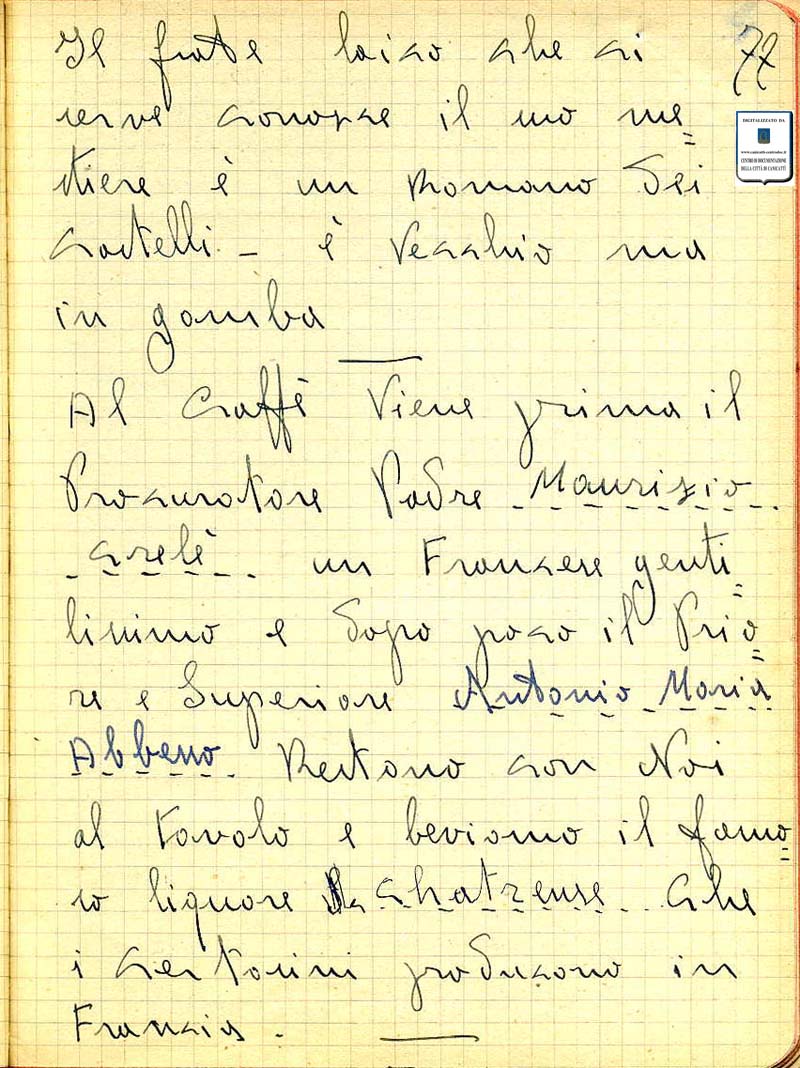 Il frate laico che ci
77
serve conosce il suo me=
stiere è un Romano dei
Castelli - è vecchio ma
in gamba
Al Caffè viene prima il
Procuratore Padre Maurizio
Crelè un Francese genti=
lissimo e dopo poco il Prio=
re e Superiore Antonio Maria
Abbeno Restano con Noi
al tavolo e beviamo il famo=
so liquore chatreuse che
i certosini producono in
Francia.
DIGITALIZZATO DA
CENTRO DI DOCUMENTAZIONE
DELLA CITTÀ DI CANICATTÌ